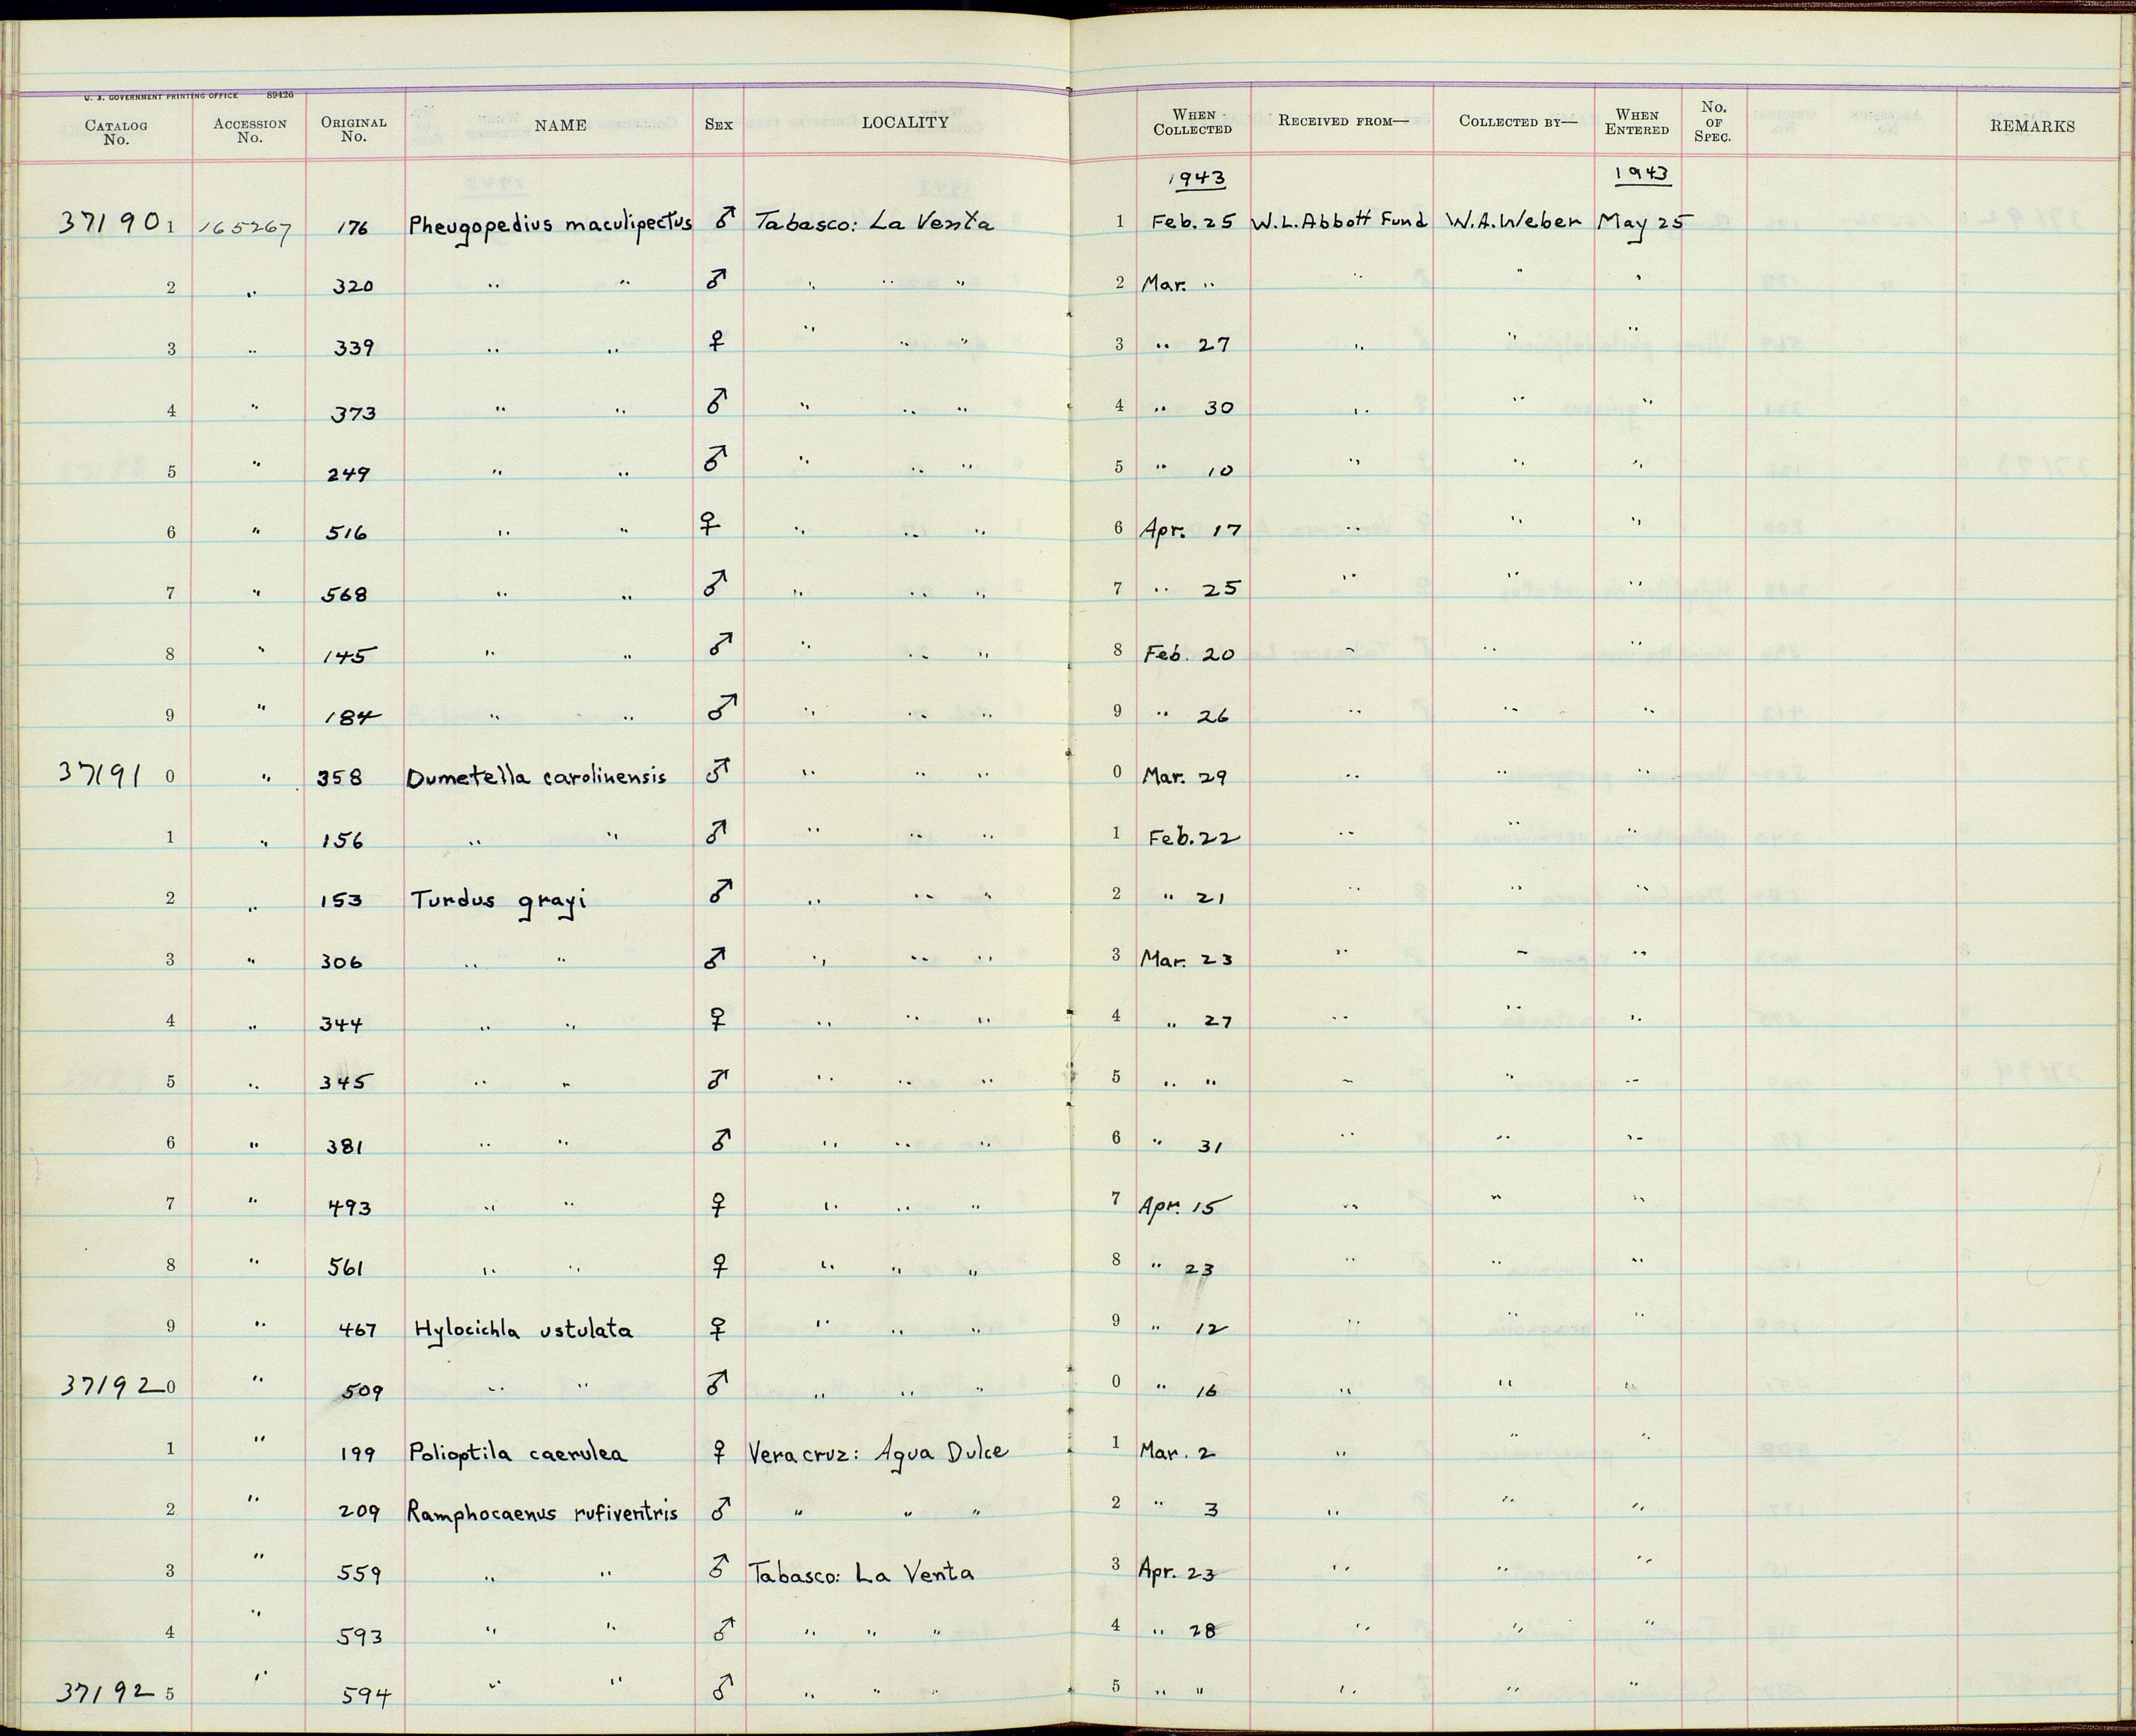 U. S. GOVERNMENT PRINTING OFFICE 89426
CATALOG No. ACCESSION No. ORIGINAL No. NAME SEX LOCALITY WHEN COLLECTED RECEIVED FROM— COLLECTED BY— WHEN ENTERED No. OF SPEC. REMARKS
1943 1943
37190 1 165267 176 Pheugopedius maculipectus ♂ Tabasco: La Venta 1 Feb. 25 W.L. Abbott Fund W.A. Weber May 25
2 " 320 " " ♂ " " " 2 Mar. " " " "
3 " 339 " " ♀ " " " 3 " 27 " " "
4 " 373 " " ♂ " " " 4 " 30 " " "
5 " 249 " " ♂ " " " 5 " 10 " " "
6 " 516 " " ♀ " " " 6 Apr. 17 " " "
7 " 568 " " ♂ " " " 7 " 25 " " "
8 " 145 " " ♂ " " " 8 Feb. 20 " " "
9 " 184 " " ♂ " " " 9 " 26 " " "
37191 0 " 358 Dumetella carolinensis ♂ " " " 0 Mar. 29 " " "
1 " 156 " " ♂ " " " 1 Feb. 22 " " "
2 " 153 Turdus grayi ♂ " " " 2 " 21 " " "
3 " 306 " " ♂ " " " 3 Mar. 23 " " "
4 " 344 " " ♀ " " " 4 " 27 " " "
5 " 345 " " ♂ " " " 5 " " " " "
6 " 381 " " ♂ " " " 6 " 31 " " "
7 " 493 " " ♀ " " " 7 Apr. 15 " " "
8 " 561 " " ♀ " " " 8 " 23 " " "
9 " 467 Hylocichla ustulata ♀ " " " 9 " 12 " " "
37192 0 " 509 " " ♂ " " " 0 " 16 " " "
1 " 199 Polioptila caerulea ♀ Vera cruz: Agua Dulce 1 Mar. 2 " " "
2 " 209 Ramphocaenus rufiventris ♂ " " " 2 " 3 " " "
3 " 559 " " ♂ Tabasco: La Venta 3 Apr. 23 " " "
4 " 593 " " ♂ " " " 4 " 28 " " "
37192 5 " 594 " " ♂ " " " 5 " " " " "